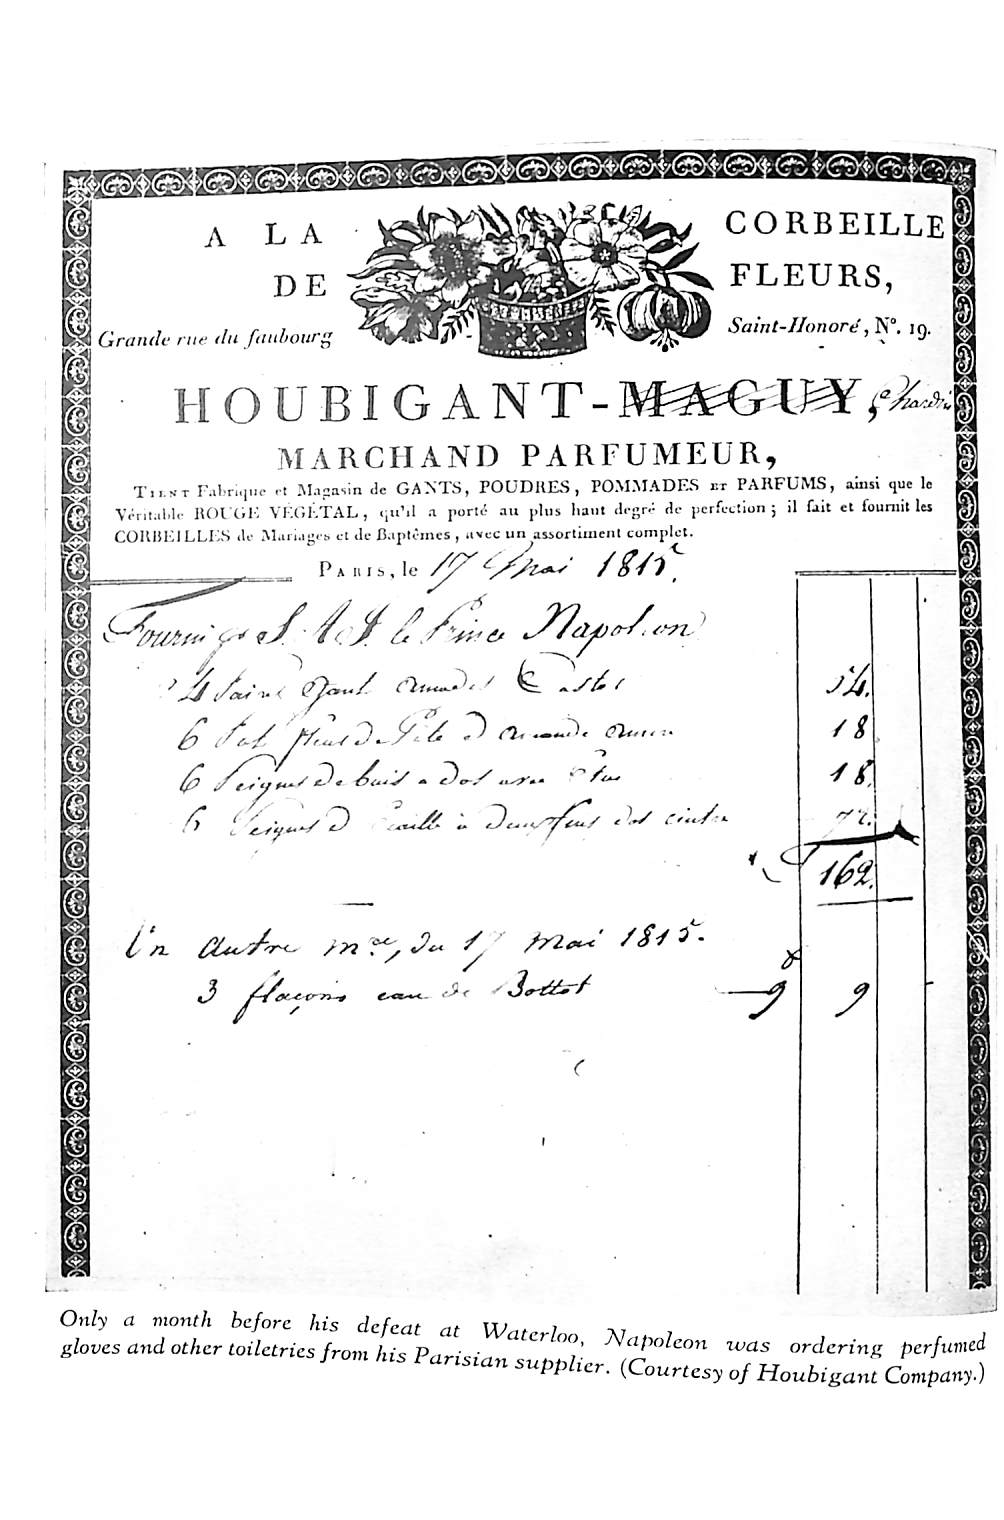 A LA CORBEILLE
DE FLEURS,
Grande rue du faubourg Saint-Honoré, N°. 19.
HOUBIGANT-MAGUY, Chardin
MARCHAND PARFUMEUR,
TIENT Fabrique et Magasin de GANTS, POUDRES, POMMADES ET PARFUMS, ainsi que le
Véritable ROUGE VÉGÉTAL, qu'il a porté au plus haut degré de perfection; il fait et fournit les
CORBEILLES de Mariages et de Baptêmes, avec un assortiment complet.
PARIS, le 17 Mai 1815.
Fourni S. A. I. le Prince Napoleon
Gant Castor 54.
6 Pate d 18
6 Peignes de buis a dos 18.
6 Peignes d Ecaille à dos cintré 72.
162.
Un autre du 17 mai 1815.
3 flaçons eau de Bottot 9 9
Only a month before his defeat at Waterloo, Napoleon was ordering perfumed
gloves and other toiletries from his Parisian supplier. (Courtesy of Houbigant Company.)